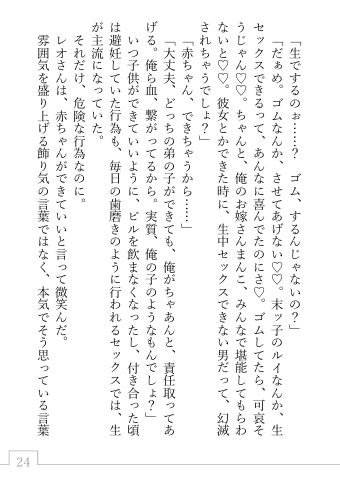 「生でするのぉ……？　ゴム、するんじゃないの？」
「だぁめ。ゴムなんか、させてあげない♡♡。末ッ子のルイなんか、生
セックスできるって、あんなに喜んでたのにさ♡。ゴムしてたら、可哀そ
うじゃん♡♡。ちゃんと、俺のお嫁さんまんこ、みんなで堪能してもらわ
ないと♡♡。彼女とかできた時に、生中セックスできない男だって、幻滅
されちゃうでしょ？」
「赤ちゃん、できちゃうから……」
「大丈夫、どっちの弟の子ができても、俺がちゃあんと、責任取ってあ
げる。俺ら血、繋がってるから。実質、俺の子のようなもんでしょ？」
いつ子供ができていいように、ピルを飲まなくなったし、付き合った頃
は避妊していた行為も、毎日の歯磨きのように行われるセックスでは、生
が主流になっていた。
それだけ、危険な行為なのに。
レオさんは、赤ちゃんができていいと言って微笑んだ。
雰囲気を盛り上げる飾り気の言葉ではなく、本気でそう思っている言葉
24